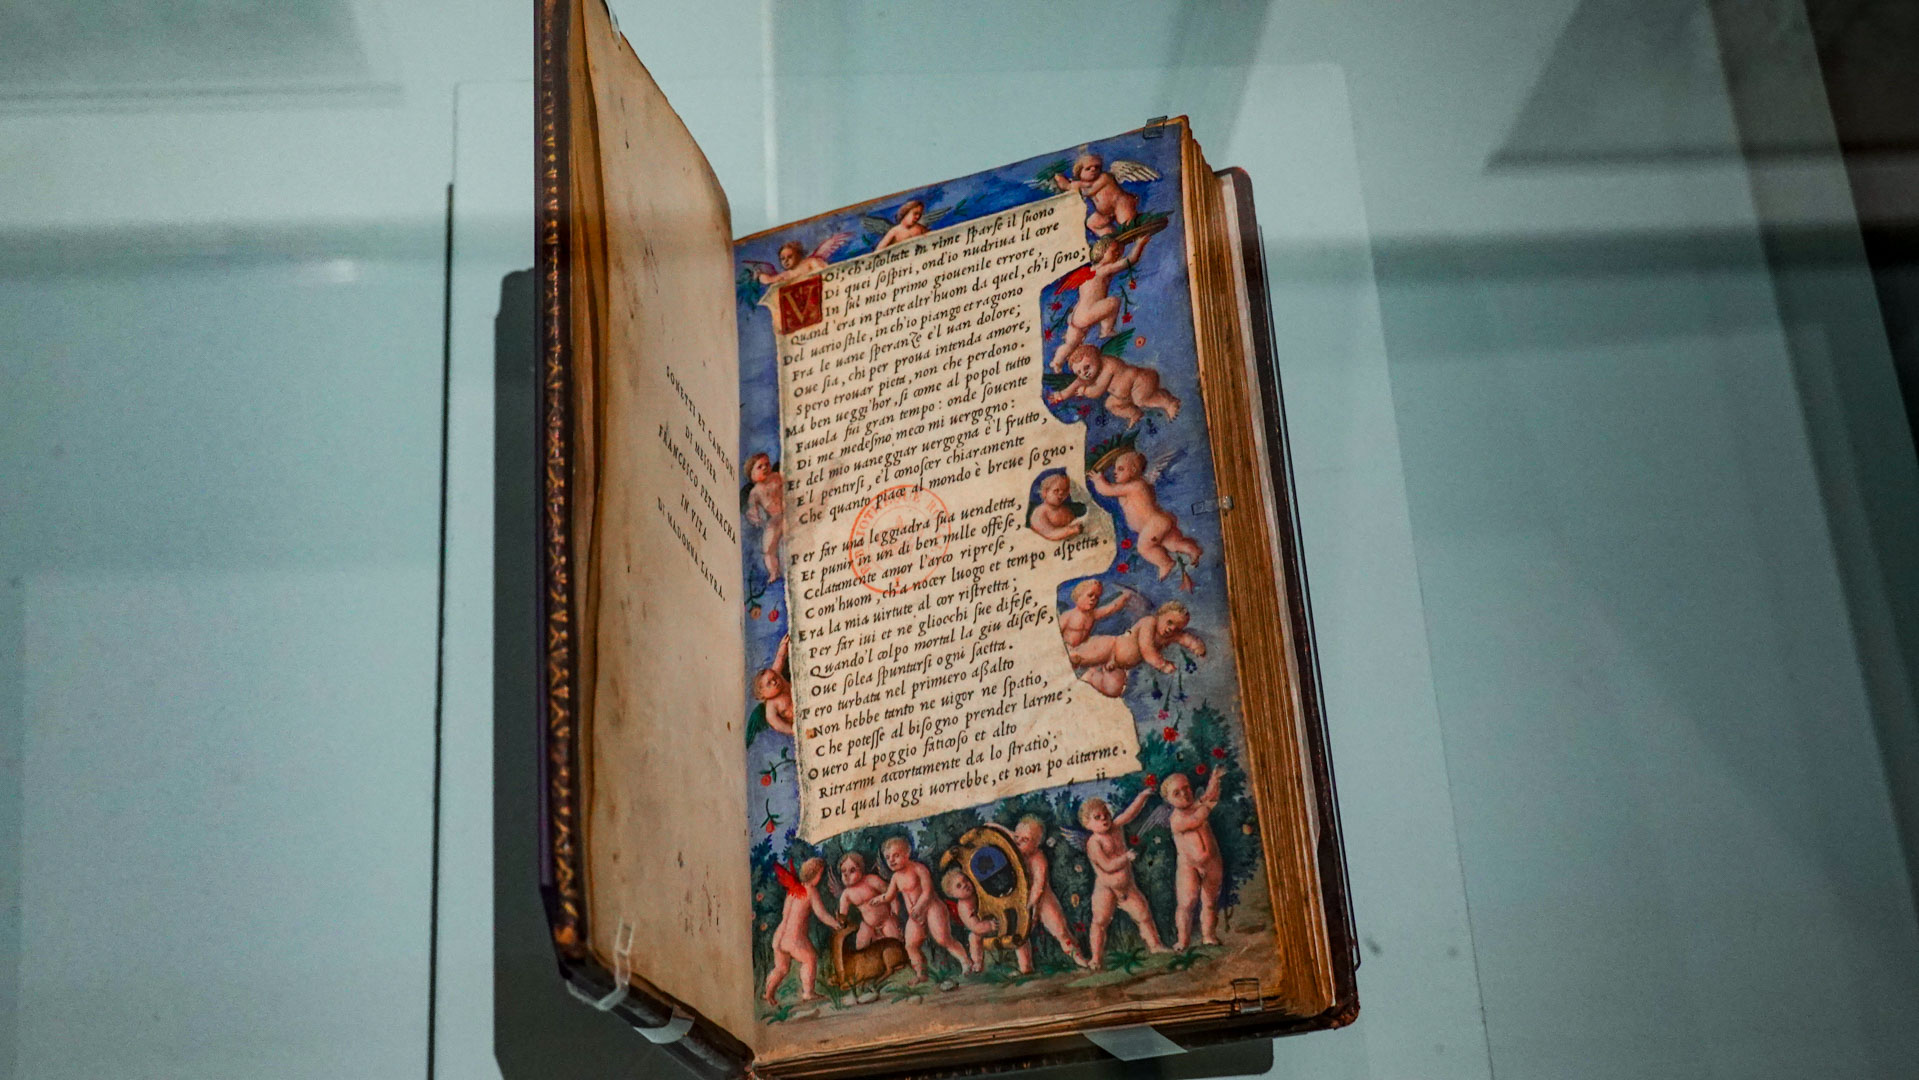 SONETTI ET CANZONI
DI MESSER
FRANCESCO PETRARCHA
IN VITA
DI MADONNA LAVRA.
VOi, ch'aſcoltate in rime ſparſe il ſuono
Di quei ſoſpiri, ond'io nudriua il core
In ſul mio primo giouenile errore,
Quand'era in parte altr'huom da quel, ch'i ſono;
Del uario ſtile, in ch'io piango et ragiono
Fra le uane ſperanze e'l uan dolore;
Oue ſia, chi per proua intenda amore,
Spero trouar pieta, non che perdono.
Ma ben ueggi'hor, ſi come al popol tutto
Fauola fui gran tempo: onde ſouente
Di me medeſmo meco mi uergogno:
Et del mio uaneggiar uergogna è'l frutto,
E'l pentirſi, e'l conoſcer chiaramente
Che quanto piace al mondo è breue ſogno.
Per far una leggiadra ſua uendetta,
Et punir in un di ben mille offeſe,
Celatamente amor l'arco ripreſe,
Com'huom, ch'a nocer luogo et tempo aſpetta.
Era la mia uirtute al cor riſtretta;
Per far iui et ne gliocchi ſue difeſe,
Quando'l colpo mortal la giu diſceſe,
Oue ſolea ſpuntarſi ogni ſaetta.
Pero turbata nel primiero aßalto
Non hebbe tanto ne uigor ne ſpatio,
Che poteſſe al biſogno prender larme;
Ouero al poggio faticoſo et alto
Ritrarmi accortamente da lo ſtratio;
Del qual hoggi uorrebbe, et non po aitarme.
ii